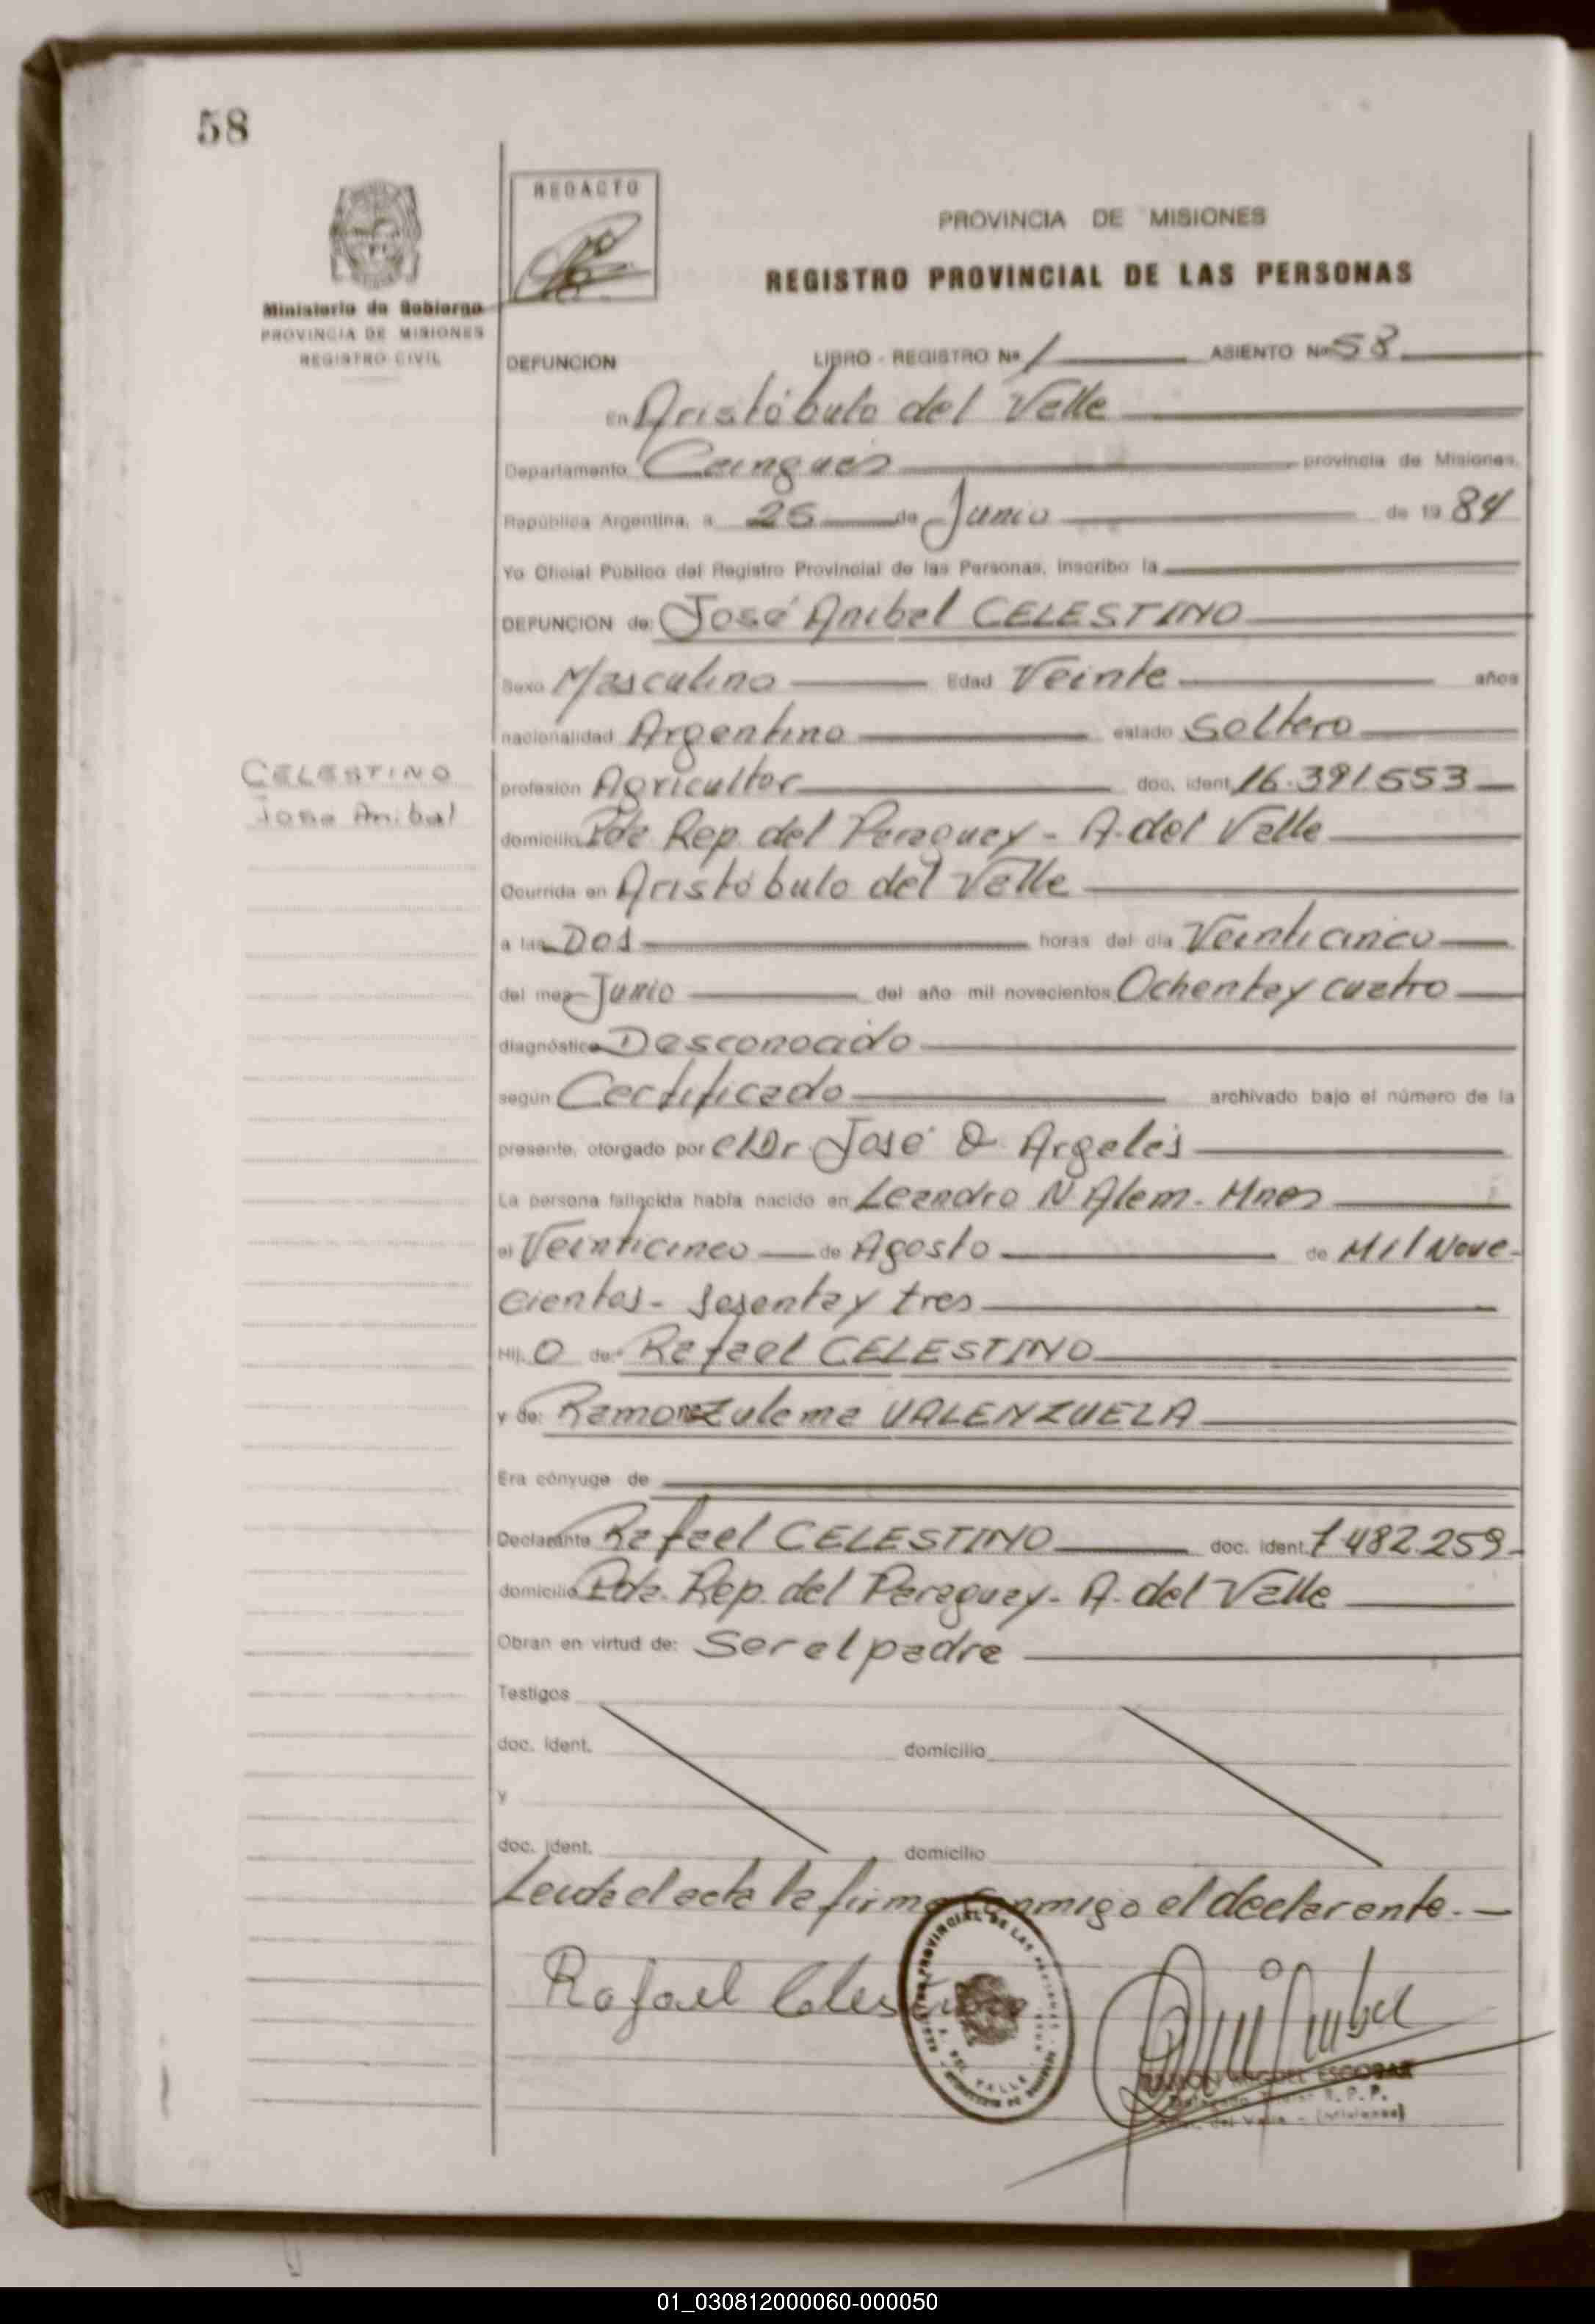 58
REDACTO
PROVINCIA DE MISIONES
REGISTRO PROVINCIAL DE LAS PERSONAS
Ministerio de Gobierno
PROVINCIA DE MISIONES
REGISTRO CIVIL
DEFUNCION LIBRO - REGISTRO Nº 1 ASIENTO Nº 58
En Aristóbulo del Valle
Departamento Cainguás provincia de Misiones,
República Argentina, a 25 de Junio de 19 84
Yo Oficial Público del Registro Provincial de las Personas, inscribo la
DEFUNCION de: José Anibal CELESTINO
Sexo Masculino Edad Veinte años
nacionalidad Argentino estado Soltero
CELESTINO
José Anibal
profesión Agricultor doc. ident. 16.391.553
domicilio Pda Rep. del Paraguay - A. del Valle
Ocurrida en Aristóbulo del Valle
a las Dos horas del día Veinticinco
del mes Junio del año mil novecientos Ochenta y cuatro
diagnóstico Desconocido
según Certificado archivado bajo el número de la
presente, otorgado por el Dr José O. Argelés
La persona fallecida había nacido en Leandro N Alem - Mnes
el Veinticinco de Agosto de Mil Nove-
cientos - sesenta y tres
Hij O de: Rafael CELESTINO
y de: Ramona Zulema VALENZUELA
Era cónyuge de
Declarante Rafael CELESTINO doc. ident. 7.482.259
domicilio Pda. Rep. del Paraguay - A. del Valle
Obran en virtud de: Ser el padre
Testigos
doc. ident. domicilio
y
doc. ident. domicilio
Leida el acta la firma conmigo el declarante.
Rafael Celestino
REGISTRO PROVINCIAL DE LAS PERSONAS
A. DEL VALLE
RAMON MIGUEL ESCOBAR
R. P. P.
del Valle - (Misiones)
01_030812000060-000050